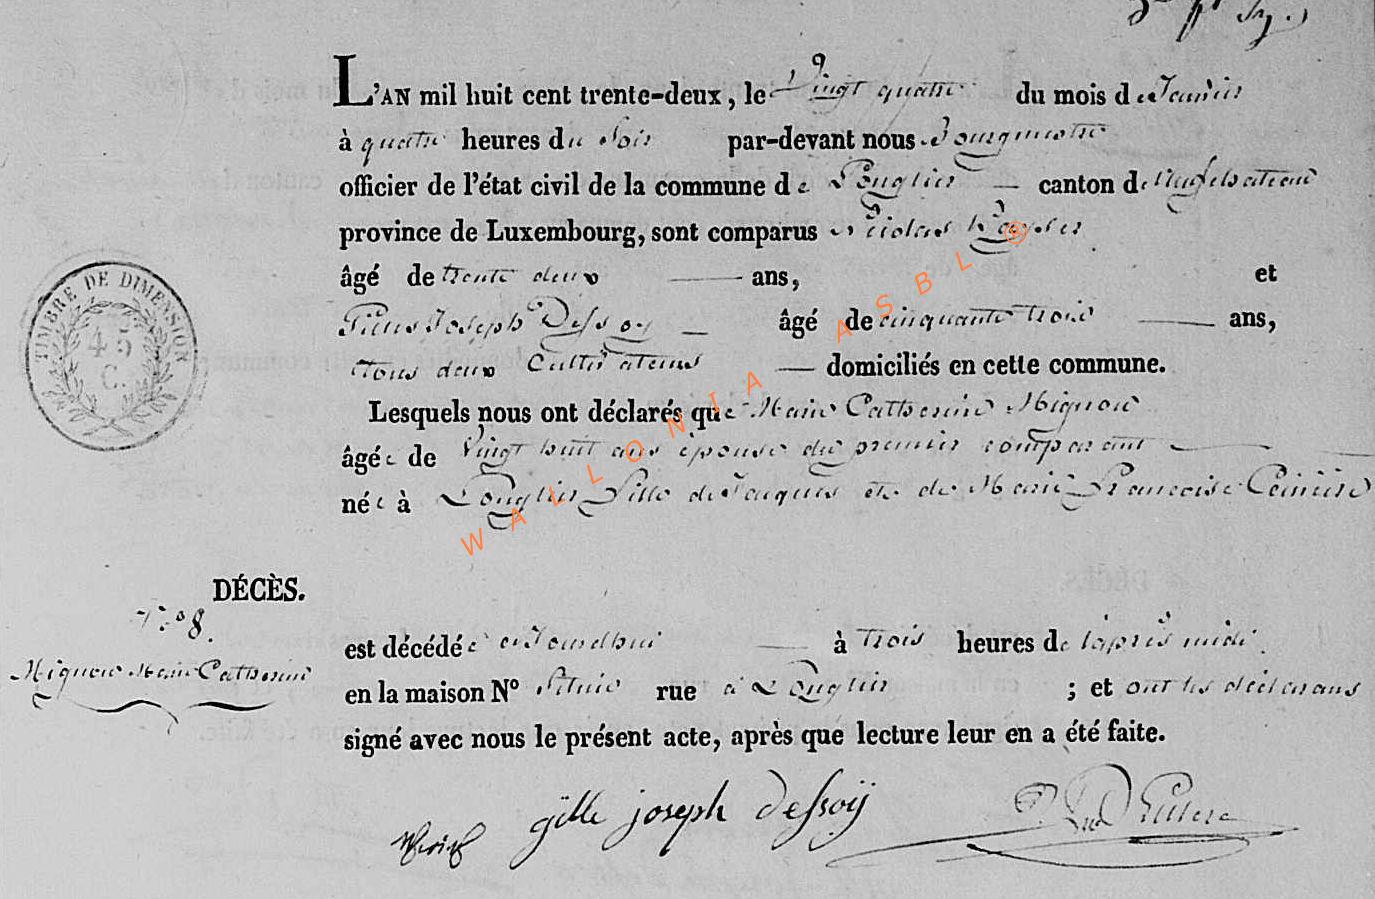 L'AN mil huit cent trente-deux, le Vingt quatre du mois de Janvier
à quatre heures du Soir par-devant nous Bourgmestre
officier de l'état civil de la commune de Longlier canton de Neufchateau
province de Luxembourg, sont comparus Nicolas
âgé de trente deux ans, et
Joseph Dessoy âgé de cinquante trois ans,
tous deux Cultivateurs domiciliés en cette commune.
Lesquels nous ont déclarés que Marie Catherine Mignon
âgée de Vingt huit ans épouse du premier comparant
née à Longlier fille de Jaques et de Marie Francoise
DÉCÈS.
N° 8.
Mignon Marie Catherine
est décédée à trois heures de l'après midi
en la maison N° située rue à Longlier ; et ont les déclarans
signé avec nous le présent acte, après que lecture leur en a été faite.
gille joseph dessoij
TIMBRE DE DIMENSION
45
C.
WALLONIA ASBL ®